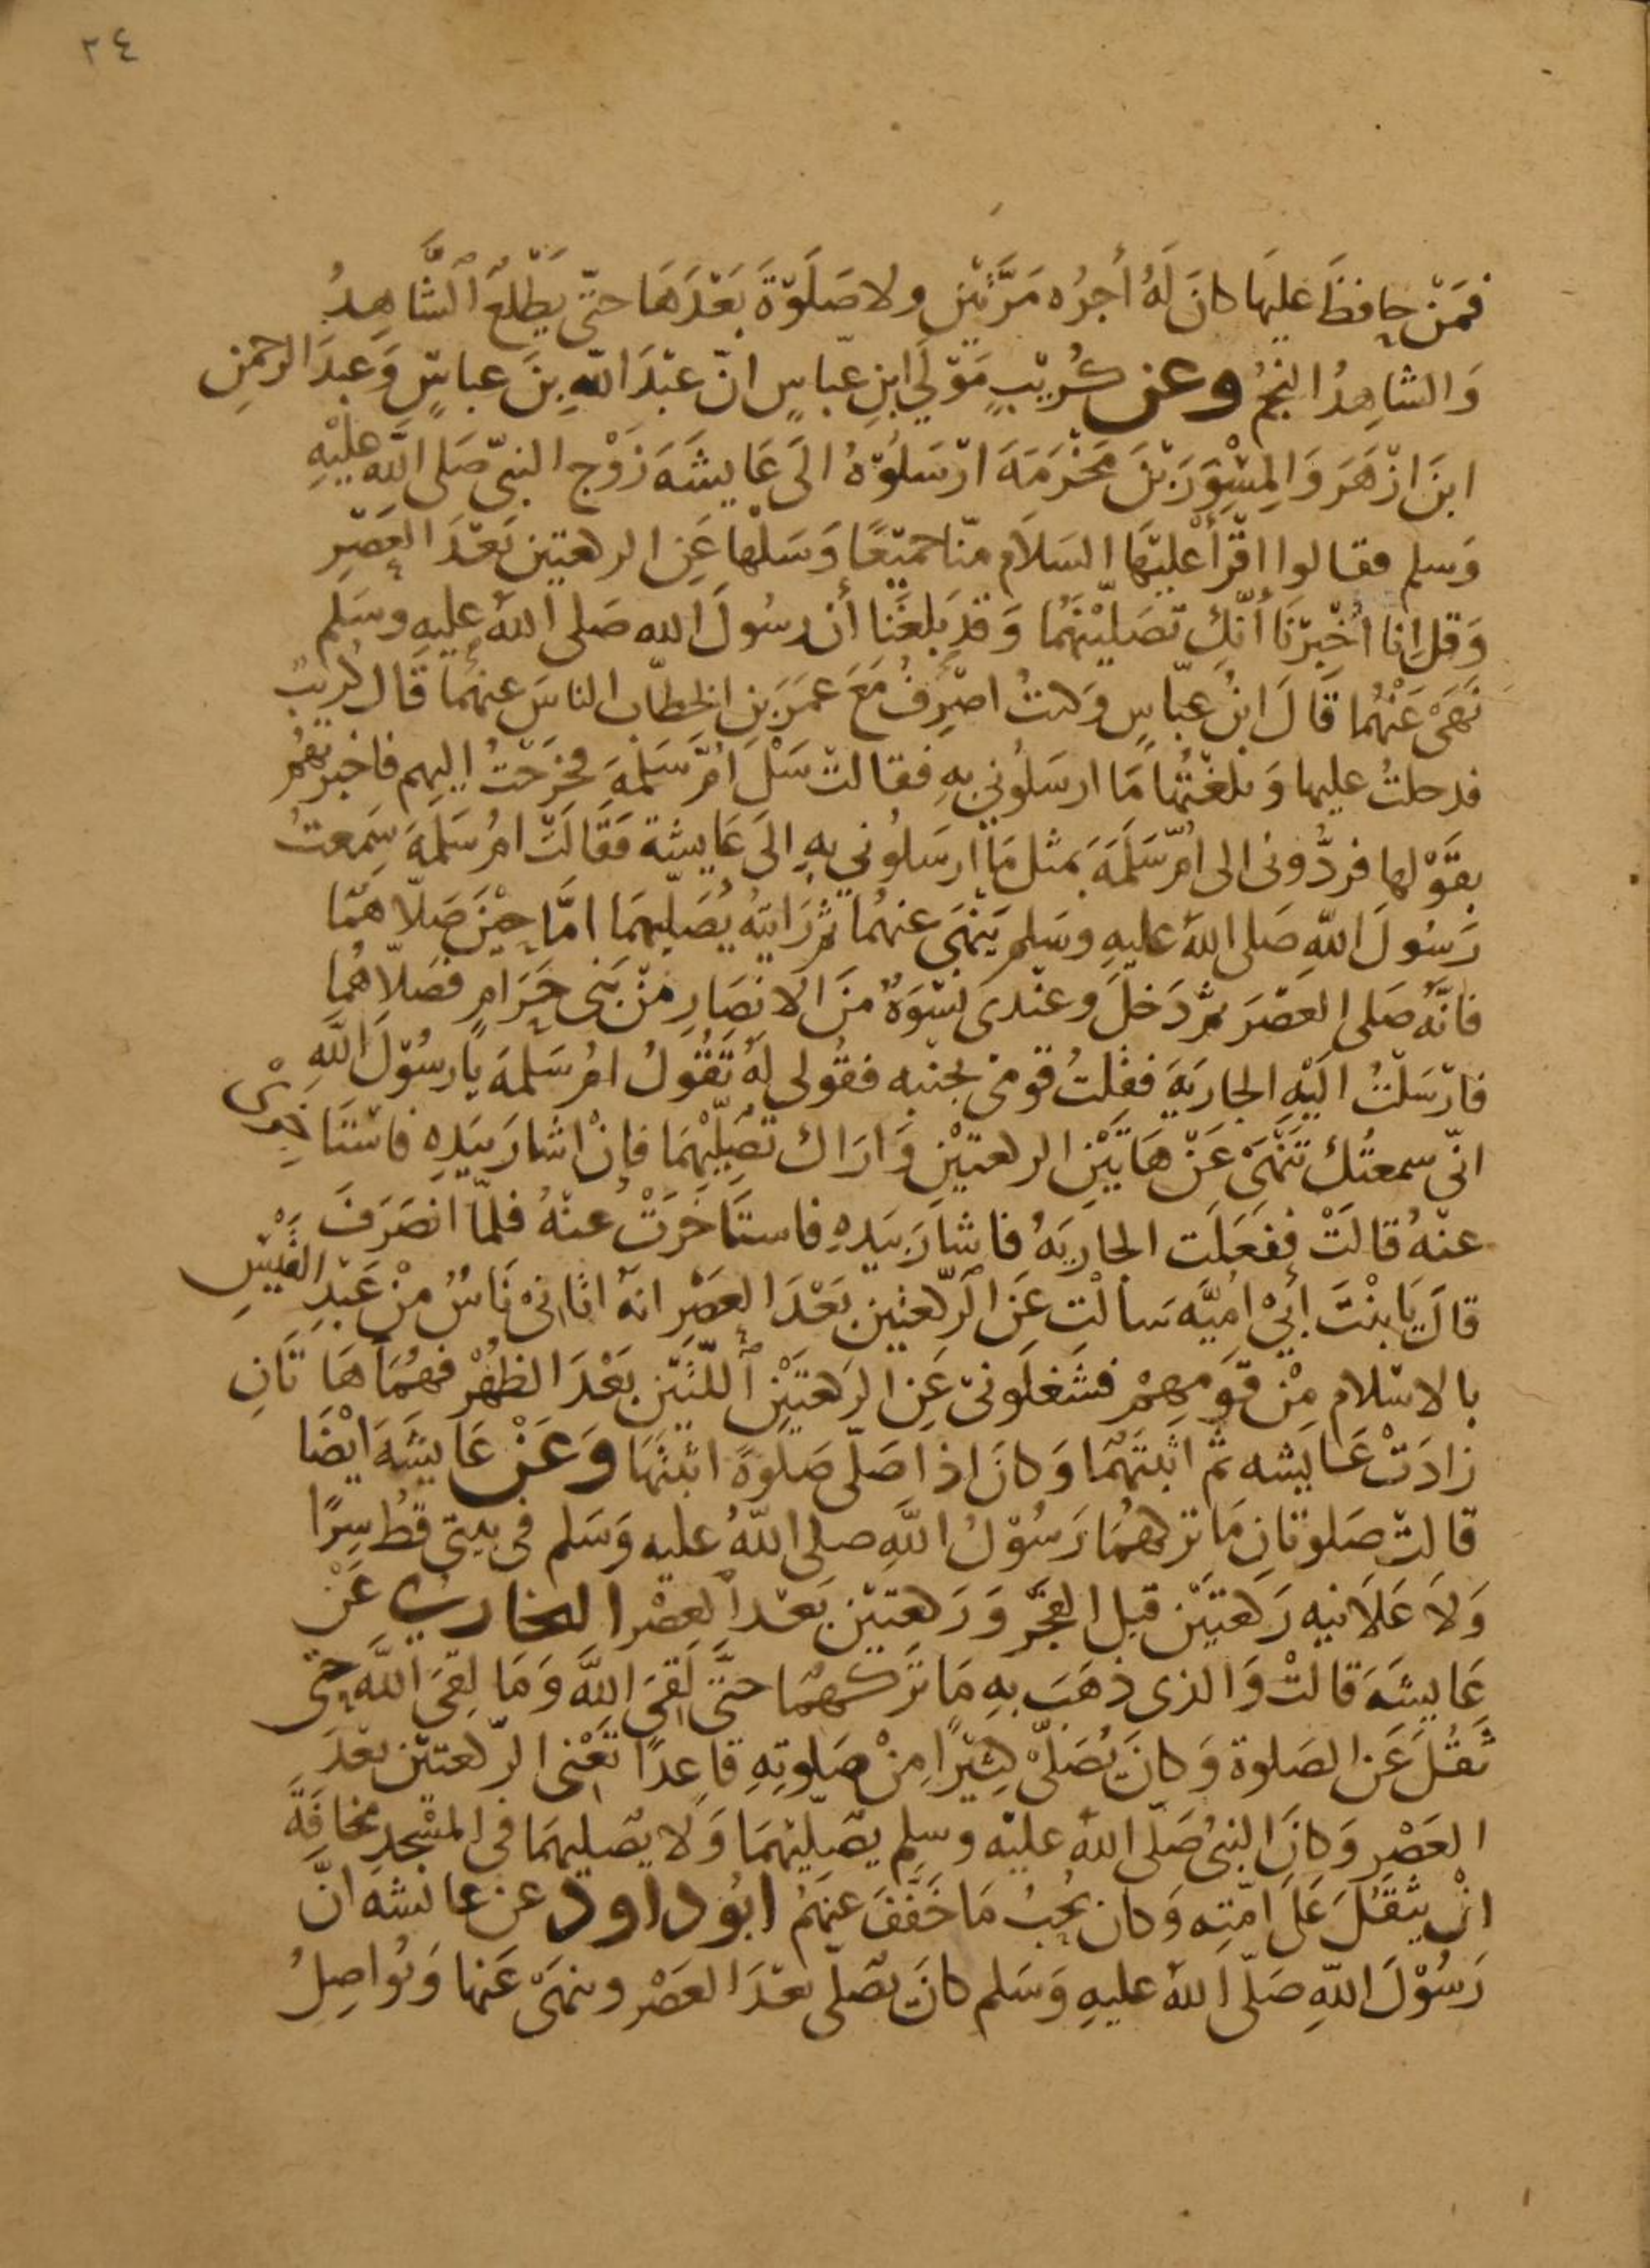 ٢٤
فَمَنْ حافظَ عليهَا كانَ لَهُ أجرُه مَرَّتَيْن ولا صَلَوٰةَ بَعْدَهَا حتّى يَطْلُعَ الشَّاهِدُ
وَالشاهِدُ النجمُ وعن كُرَيْبٍ مَوْلَى ابنِ عبّاسٍ انّ عبْدَ اللّهِ بنَ عباسٍ وَعبدَ الرحمنِ
ابنَ ازْهَرَ وَالمِسْوَرَ بْنَ مَخْرَمَةَ ارْسَلوُهُ الَى عَايشَةَ زَوْج النبىّ صَلى اللّه عليْهِ
وَسلم فقالوا اقْرَأْ عليْهَا السَلاَم منّا جميْعًا وَسَلْها عَنِ الركعتين بَعْدَ العَصْرِ
وَقل اِنا اُخْبِرْنَا أنَّكِ تصَلّيْنَهُمَا وَقَدْ بَلغَنَا أن رسُولَ الله صَلى اللّهُ عليهِ وسَلم
نَهَى عَنْهُما قَالَ ابنُ عبّاسٍ وَكنتُ اصْرِفُ مَعَ عمَرَ بنِ الخطّاب الناسَ عنهُمَا قَال كُرَيْبٌ
فدخلتُ عليها وَبلغْتُهَا مَا ارسَلُونى بهِ فقالتْ سَلْ اُمَّ سَلَمَةَ فخرَجْتُ اليهم فاخبرْتهُمْ
بقَوْلها فردُّونى الى اُمّ سَلَمَةَ بمثل مَا ارسَلوُنى بهِ الَى عَايشة فَقَالَتْ امُ سَلَمَةَ سَمعتُ
رَسُولَ اللّهِ صَلى اللّهُ عليهِ وسَلم يَنْهَى عنهُما ثم رَايتهُ يُصَلّيهمَا امَّا حيْنَ صَلّاهمَا
فانّهُ صَلى العصْرَ ثم دَخلَ وعنْدىَ نسْوَةٌ منَ الانصَارِ منْ بَنى حَرَامٍ فصَلّاهُمَا
فارْسَلْتُ الَيْهِ الجاريَةَ فقلْتُ قومْى بجنْبه فقُولى لهُ تَقُولُ امُ سَلمةَ يا رسُوْلَ اللّهِ
انّى سمعتُكَ تَنْهَىْ عَنْ هَاتَيْنِ الركعتيْنِ وَارَاك تصَلّيْهِمَا فاِنْ اشارَ بيَدِهِ فاسْتَاخِرِىْ
عنْهُ قالَتْ ففعَلَت الجاريَهُ فاشارَ بيَدِهِ فاستَاخَرَتْ عنْهُ فلمّا انْصَرَفَ
قالَ يَا بنْتَ أبىْ اميَّه سَالْتِ عَنِ الرّكعتين بَعْدَ العَصْرِ انهُ اتَانىْ نَاسٌ منْ عَبْدِ القَيْسِ
بالاسْلام مِنْ قَوْمِهِمْ فشَغلَونىْ عَنِ الركعَتَيْنِ اللّتَيْن بَعْدَ الظُهْر فهُمَا هَا تَانِ
زادَتْ عَايشه ثم اثبتَهُمَا وَكانَ اذا صَلّى صَلوةً اثبتَهَا وَعَنْ عَايشَةَ ايْضَا
قالتْ صَلوتانِ مَا تركهمُا رَسُوْلُ اللّهِ صلى اللّهُ عليه وَسَلم فى بيتى قَطُ سِرًا
وَلاَ عَلَانيه رَكعتيْن قبل الفجْر وَرَكعتيْن بَعْد العصْر البخارىّ عَنْ
عَايشَةَ قالتْ وَالذى ذهَبَ بهِ مَا تَركهمَا حتَّى لَقِىَ اللّهَ وَمَا لقِىَ اللّهَ حتى
ثقُلَ عَن الصَلوة وَكانَ يُصَلّى كثِيْرًا مِنْ صَلوتِهِ قاعِدًا تَعْنى الرّكعتيْن بعْدَ
العَصْر وَكانَ النبىُ صَلّى اللّهُ عليْه وسلم يصَليْهمَا وَلَا يصَليهمَا فى المسْجد مخافَةَ
انْ يثقلَ عَلَى امّته وَكان يُحِبُ مَا خَفَّفَ عنهمُ ابوُ داود عن عائشه انّ
رَسُوْلَ اللّهِ صَلّى اللّهُ عليهِ وَسَلم كانَ يصَلى بعْدَ العَصْر وينهَى عَنها وَيُواصِلُ